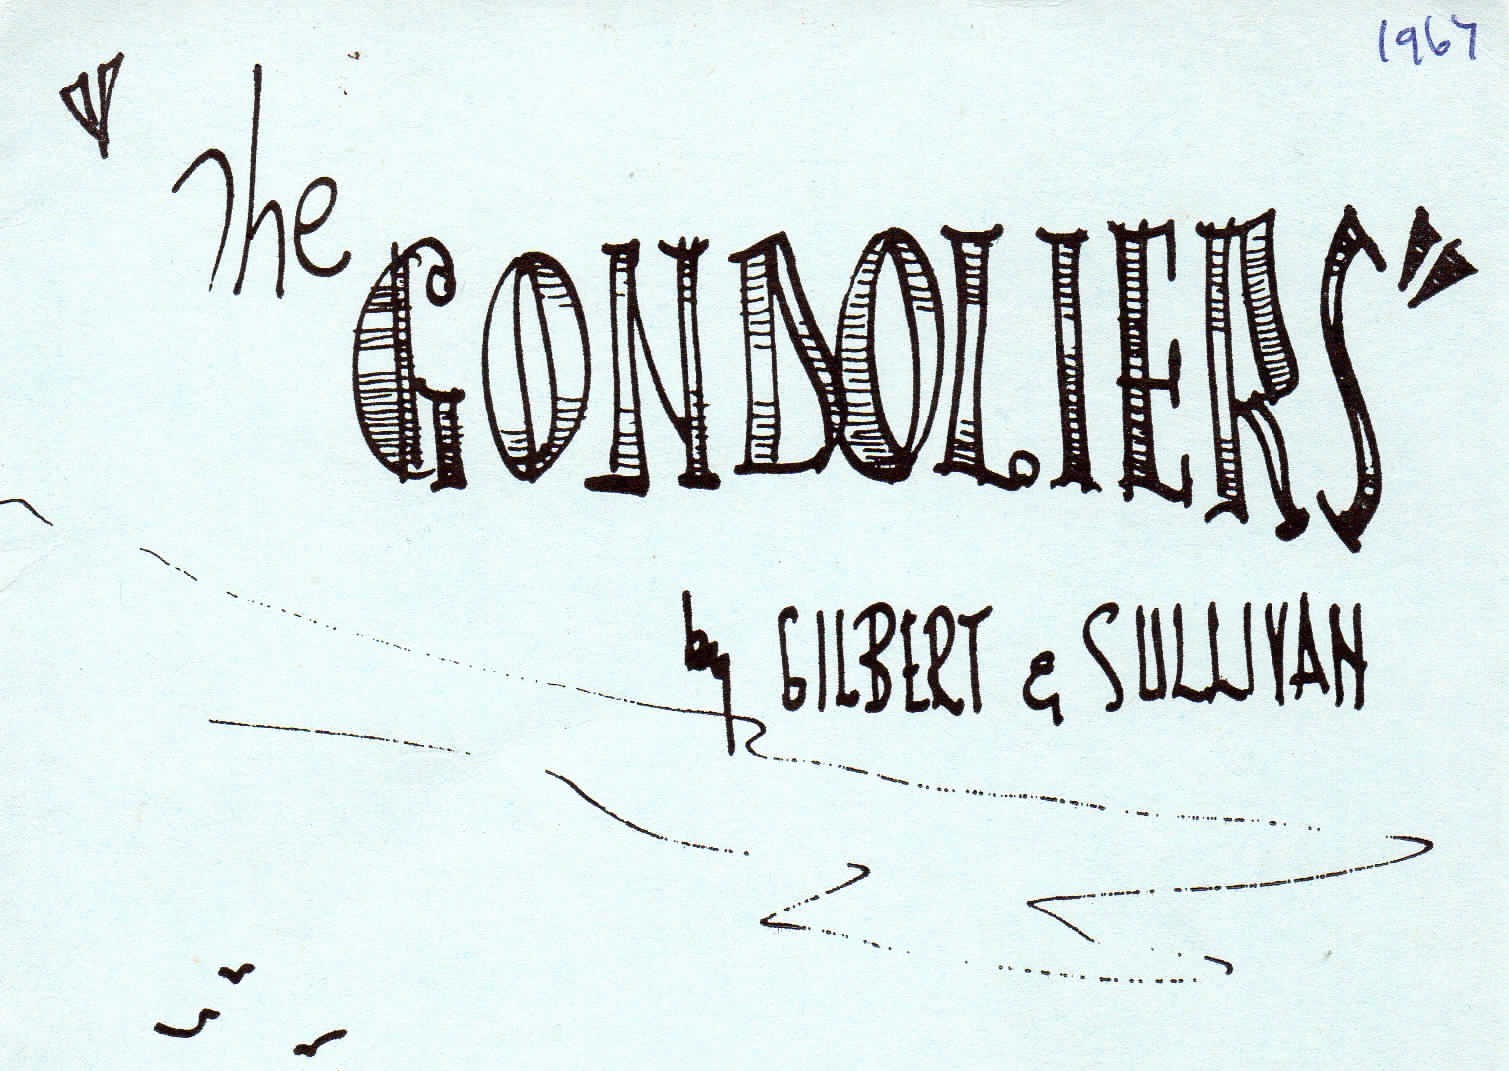 1967
"The
GONDOLIERS"
by GILBERT & SULLIVAN